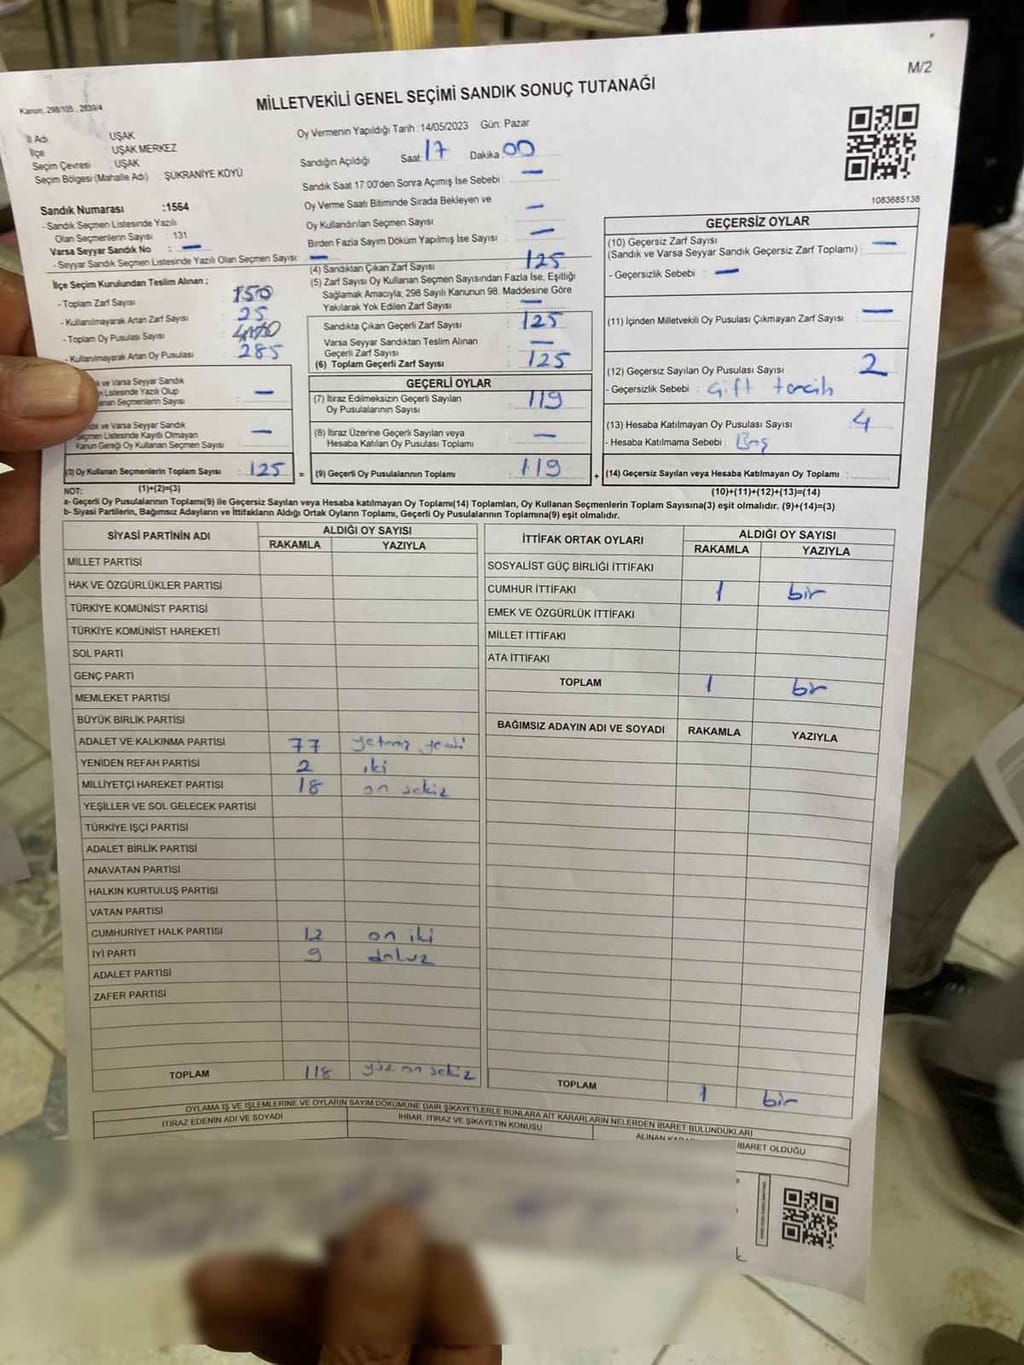 M/2
Kanun, 298/105 , 2839/4
MİLLETVEKİLİ GENEL SEÇİMİ SANDIK SONUÇ TUTANAĞI
İl Adı UŞAK
İlçe UŞAK MERKEZ
Seçim Çevresi UŞAK
Seçim Bölgesi (Mahalle Adı) ŞÜKRANİYE KÖYÜ
Sandık Numarası :1564
- Sandık Seçmen Listesinde Yazılı
Olan Seçmenlerin Sayısı : 131
Varsa Seyyar Sandık No : —
- Seyyar Sandık Seçmen Listesinde Yazılı Olan Seçmen Sayısı : —
İlçe Seçim Kurulundan Teslim Alınan ;
- Toplam Zarf Sayısı : 150
- Kullanılmayarak Artan Zarf Sayısı : 25
- Toplam Oy Pusulası Sayısı :
- Kullanılmayarak Artan Oy Pusulası : 285
k ve Varsa Seyyar Sandık
Listesinde Yazılı Olup
anan Seçmenlerin Sayısı : —
ve Varsa Seyyar Sandık
Seçmen Listesinde Kayıtlı Olmayan
Kanun Gereği Oy Kullanan Seçmen Sayısı : —
(3) Oy Kullanan Seçmenlerin Toplam Sayısı : 125
(1)+(2)=(3)
Oy Vermenin Yapıldığı Tarih :14/05/2023 Gün: Pazar
Sandığın Açıldığı Saat : 17 Dakika : 00
Sandık Saat 17:00'den Sonra Açılmış İse Sebebi : —
Oy Verme Saati Bitiminde Sırada Bekleyen ve
Oy Kullandırılan Seçmen Sayısı : —
Birden Fazla Sayım Döküm Yapılmış İse Sayısı : —
(4) Sandıktan Çıkan Zarf Sayısı : 125
(5) Zarf Sayısı Oy Kullanan Seçmen Sayısından Fazla İse, Eşitliği
Sağlamak Amacıyla, 298 Sayılı Kanunun 98. Maddesine Göre
Yakılarak Yok Edilen Zarf Sayısı : —
Sandıkta Çıkan Geçerli Zarf Sayısı : 125
Varsa Seyyar Sandıktan Teslim Alınan
Geçerli Zarf Sayısı : —
(6) Toplam Geçerli Zarf Sayısı : 125
GEÇERLİ OYLAR
(7) İtiraz Edilmeksizin Geçerli Sayılan
Oy Pusulalarının Sayısı : 119
(8) İtiraz Üzerine Geçerli Sayılan veya
Hesaba Katılan Oy Pusulası Toplamı : —
= (9) Geçerli Oy Pusulalarının Toplamı : 119 +
1083685138
GEÇERSİZ OYLAR
(10) Geçersiz Zarf Sayısı : —
(Sandık ve Varsa Seyyar Sandık Geçersiz Zarf Toplamı)
- Geçersizlik Sebebi : —
(11) İçinden Milletvekili Oy Pusulası Çıkmayan Zarf Sayısı : —
(12) Geçersiz Sayılan Oy Pusulası Sayısı : 2
- Geçersizlik Sebebi : Çift tercih
(13) Hesaba Katılmayan Oy Pusulası Sayısı : 4
- Hesaba Katılmama Sebebi : Boş
(14) Geçersiz Sayılan veya Hesaba Katılmayan Oy Toplamı :
(10)+(11)+(12)+(13)=(14)
NOT:
a- Geçerli Oy Pusulalarının Toplamı(9) ile Geçersiz Sayılan veya Hesaba katılmayan Oy Toplamı(14) Toplamları, Oy Kullanan Seçmenlerin Toplam Sayısına(3) eşit olmalıdır. (9)+(14)=(3)
b- Siyasi Partilerin, Bağımsız Adayların ve İttifakların Aldığı Ortak Oyların Toplamı, Geçerli Oy Pusulalarının Toplamına(9) eşit olmalıdır.
SİYASİ PARTİNİN ADI ALDIĞI OY SAYISI
RAKAMLA YAZIYLA
MİLLET PARTİSİ
HAK VE ÖZGÜRLÜKLER PARTİSİ
TÜRKİYE KOMÜNİST PARTİSİ
TÜRKİYE KOMÜNİST HAREKETİ
SOL PARTİ
GENÇ PARTİ
MEMLEKET PARTİSİ
BÜYÜK BİRLİK PARTİSİ
ADALET VE KALKINMA PARTİSİ 77 yetmiş yedi
YENİDEN REFAH PARTİSİ 2 iki
MİLLİYETÇİ HAREKET PARTİSİ 18 on sekiz
YEŞİLLER VE SOL GELECEK PARTİSİ
TÜRKİYE İŞÇİ PARTİSİ
ADALET BİRLİK PARTİSİ
ANAVATAN PARTİSİ
HALKIN KURTULUŞ PARTİSİ
VATAN PARTİSİ
CUMHURİYET HALK PARTİSİ 12 on iki
İYİ PARTİ 9 dokuz
ADALET PARTİSİ
ZAFER PARTİSİ
TOPLAM 118 yüz on sekiz
İTTİFAK ORTAK OYLARI ALDIĞI OY SAYISI
RAKAMLA YAZIYLA
SOSYALİST GÜÇ BİRLİĞİ İTTİFAKI
CUMHUR İTTİFAKI 1 bir
EMEK VE ÖZGÜRLÜK İTTİFAKI
MİLLET İTTİFAKI
ATA İTTİFAKI
TOPLAM 1 bir
BAĞIMSIZ ADAYIN ADI VE SOYADI RAKAMLA YAZIYLA
TOPLAM 1 bir
OYLAMA İŞ VE İŞLEMLERİNE VE OYLARIN SAYIM DÖKÜMÜNE DAİR ŞİKAYETLERLE BUNLARA AİT KARARLARIN NELERDEN İBARET BULUNDUKLARI
İTİRAZ EDENİN ADI VE SOYADI İHBAR, İTİRAZ VE ŞİKAYETİN KONUSU ALINAN İBARET OLDUĞU